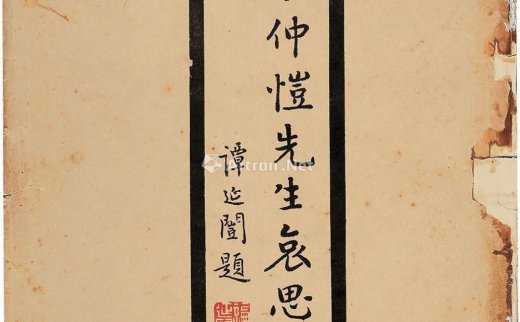 仲愷先生哀思
譚延闓題
Artron.Net